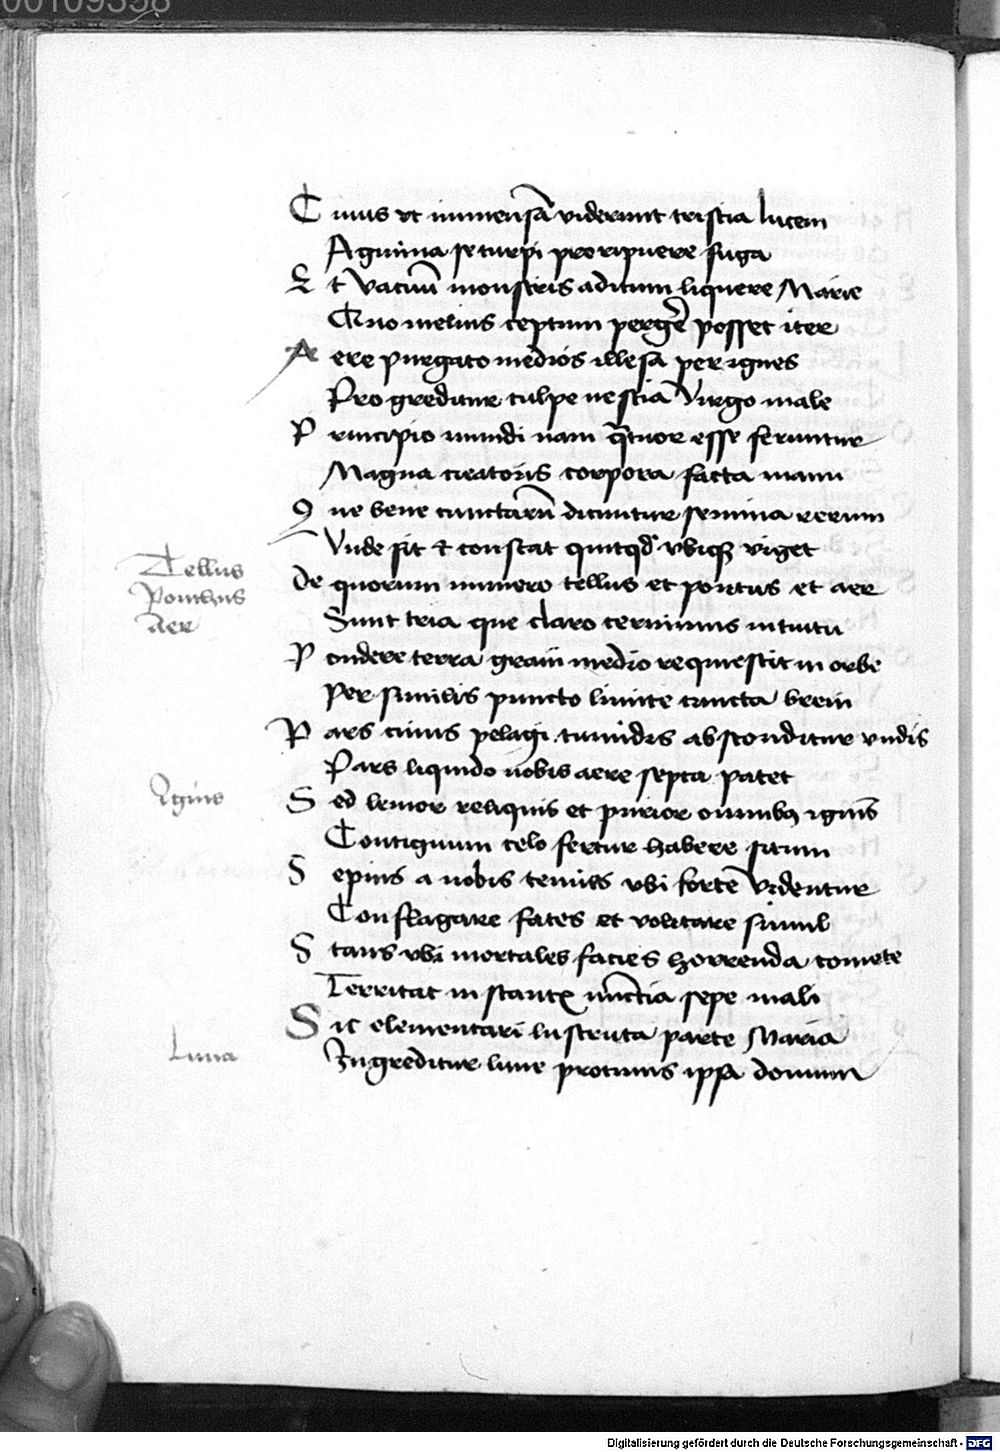 00109358
Cuius vt immensā viderunt tristia lucem
Agmina se turpi proripuere fuga
Et vacuū monstris aditum liquere Marie
Quo melius ceptum pergē̄ posset iter
Aere purgato medios illesa per ignes
Progreditur culpe nescia Virgo male
Principio mundi nam q̄tuor esse feruntur
Magna creatoris corpora facta manu
Que bene cunctarū dicuntur semina rerum
Vnde sit et constat quitqd̄ vbiqꝫ viget
Tellus
De quorum numero tellus et pontus et aer
Ponthus
Aer
Sunt tria que claro cernimus intuitu
Pondere terra graui medio requiescit in orbe
Per similis puncto limite cuncta breui
Pars cuius pelagi tumidis absconditur vndis
Pars liquido nobis aere septa patet
Ignis
Sed leuior reliquis et purior omnibꝫ ignis
Contiguum celo fertur habere situm
Sepius a nobis tenuis vbi forte videntur
Conflagare fates et volitare simul
Stans vbi mortales facies horrenda comete
Territat instantꝭ nūctia sepe mali
Sic elementari lustrata parte Maria
Luna
Ingreditur lune protinus ipsa domum
Digitalisierung gefördert durch die Deutsche Forschungsgemeinschaft - DFG